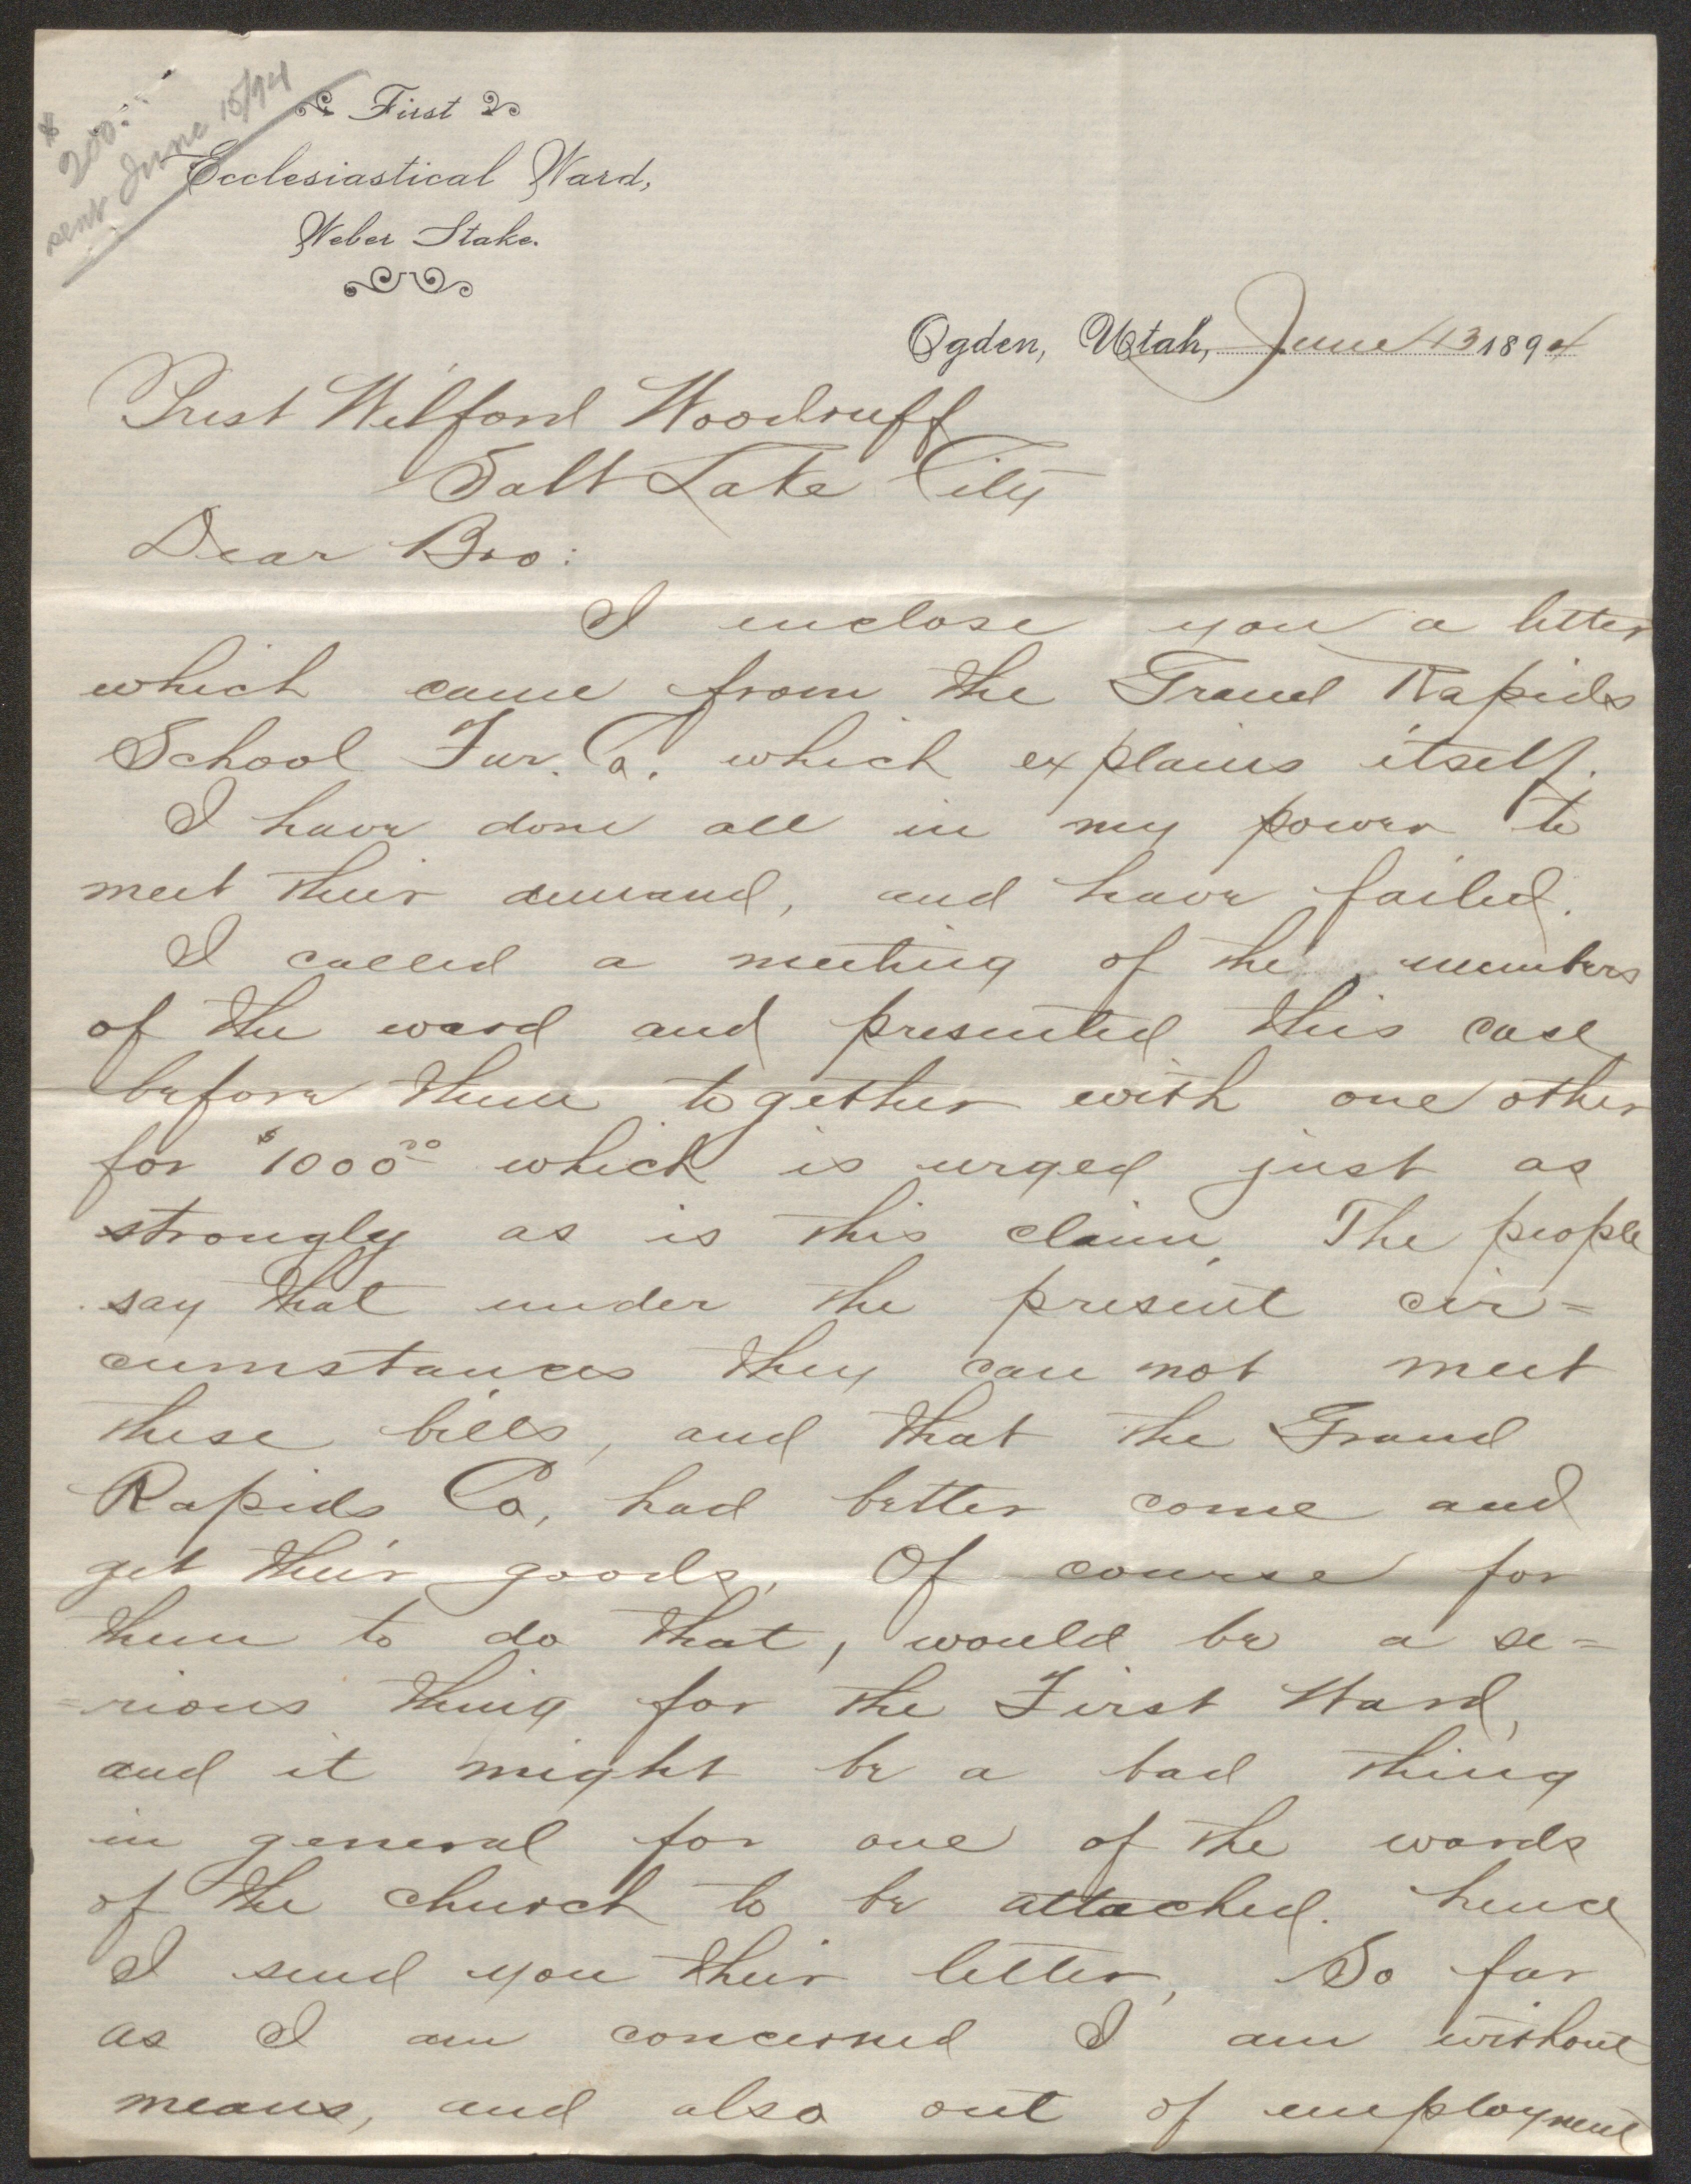 $200.00
sent June 15/94
First
Ecclesiastical Ward,
Weber Stake.
Ogden, Utah, June 13 1894
Prest Wilford Woodruff
Salt Lake City
Dear Bro:
I inclose you a letter
which came from the Grand Rapids
School Fur. Co. which explains itself.
I have done all in my power to
meet their demand, and have failed.
I called a meeting of the members
of the ward and presented this case
before them together with one other
for $1000.00 which is urged just as
strongly as is this claim. The people
say that under the present cir=
cumstances they can not meet
these bills, and that the Grand
Rapids Co, had better come and
get their goods. Of course for
them to do that, would be a se=
=rious thing for the First Ward,
and it might be a bad thing
in general for one of the wards
of the church to be attached. hence
I send you their letter, So far
as I am concerned I am without
means, and also out of employment